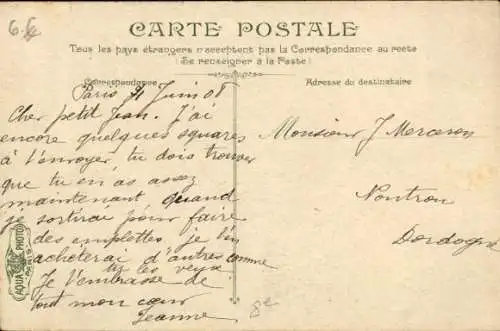 6.
CARTE POSTALE
Tous les pays étrangers n'acceptent pas la Correspondance au recto
(Se renseigner à la Poste)
Correspondance
Adresse du destinataire
Paris 21 Juin 08
Cher petit Jean. J'ai
encore quelques squares
à t'envoyer, tu dois trouver
que tu en as assez
maintenant quand
je sortirai pour faire
des emplettes je t'en
achèterai d'autres comme
tu les veux
Je t'embrasse de
tout mon cœur
Jeanne
Monsieur J Merceron
Nontron
Dordogne
AQUA PHOTO
PARIS
8e